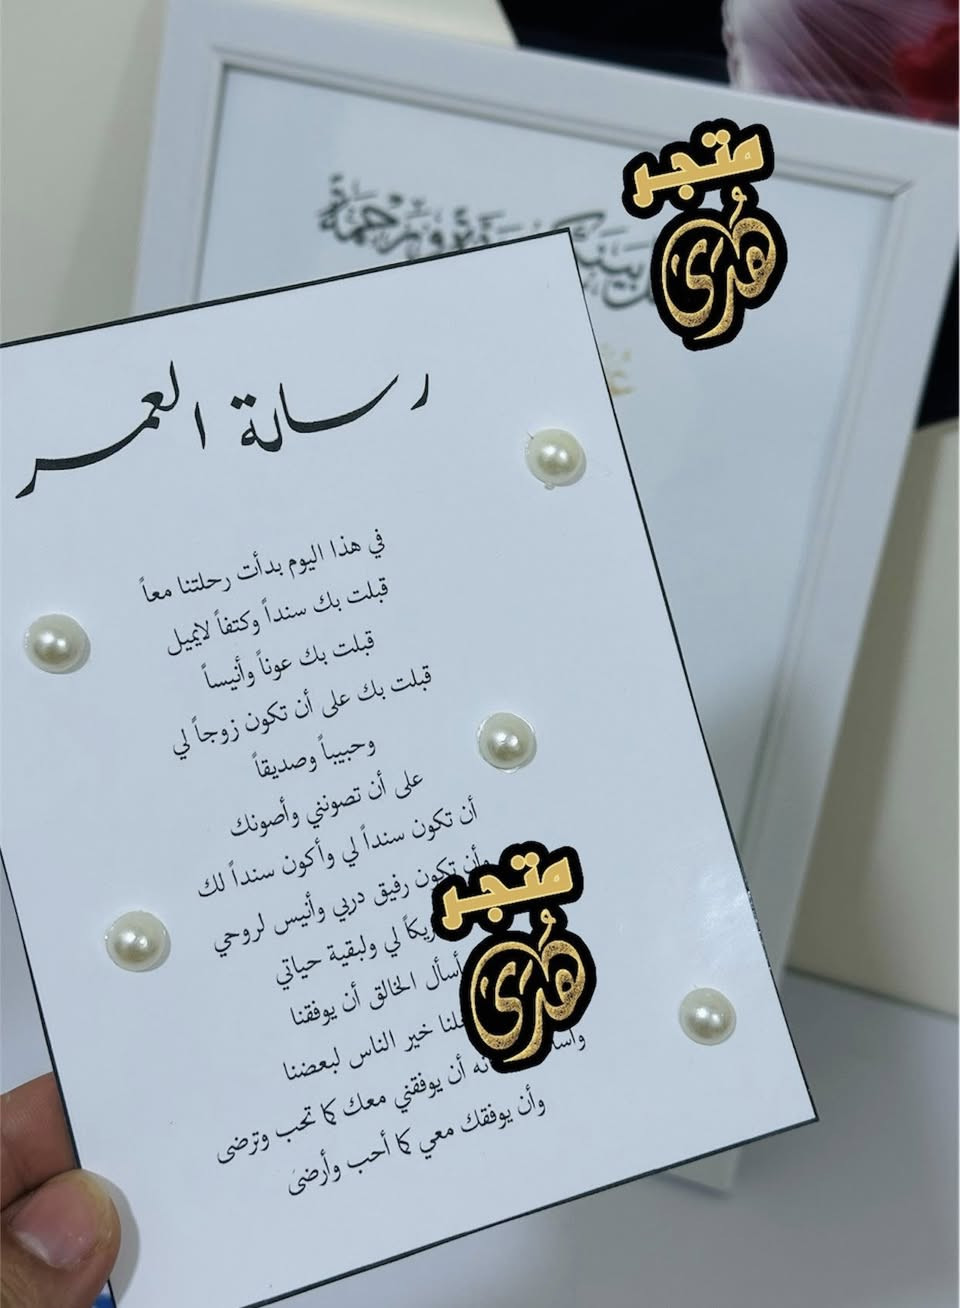 متجر
هدى
رسالة العمر
في هذا اليوم بدأت رحلتنا معاً
قبلت بك سنداً وكتفاً لايميل
قبلت بك عوناً وأنيساً
قبلت بك على أن تكون زوجاً لي
وحبيباً وصديقاً
على أن تصونني وأصونك
أن تكون سنداً لي وأكون سنداً لك
وأن تكون رفيق دربي وأنيس لروحي
لي ولبقية حياتي
أسأل الخالق أن يوفقنا
خير الناس لبعضنا
أن يوفقني معك كما تحب وترضى
وأن يوفقك معي كما أحب وأرضى
متجر
هدى